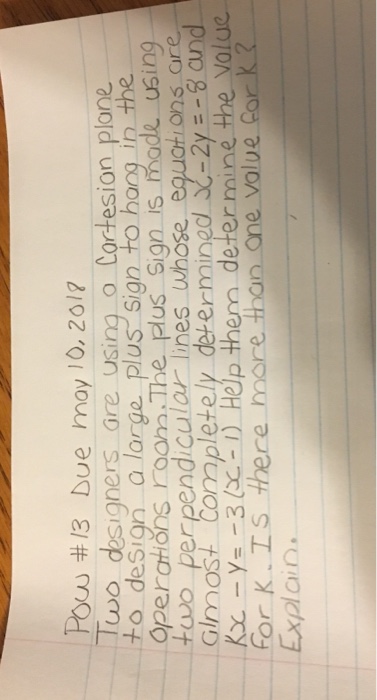 POW #13 Due may 10, 2018
Two designers are using a Cartesian plane
to design a large plus sign to hang in the
operations room. The plus sign is made using
two perpendicular lines whose equations are
almost completely determined x-2y=-8 and
Kx-y=-3(x-1) Help them determine the value
for K. Is there more than one value for K?
Explain.